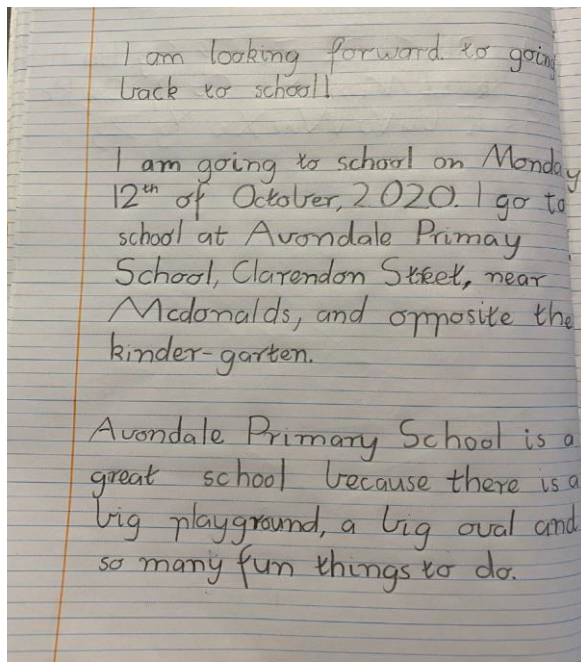 I am looking forward to going
back to school!
I am going to school on Monday
12th of October, 2020. I go to
school at Avondale Primay
School, Clarendon Street, near
Mcdonalds, and opposite the
kinder-garten.
Avondale Primary School is a
great school because there is a
big playground, a big oval and
so many fun things to do.